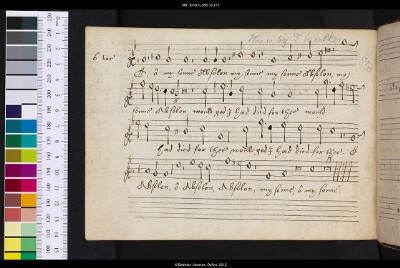 MS. Tenbury
This is by T.
6 voc.
O, o my sonne Absolon my sonne, my sonne Absolon, my
sonne Absolon would god I had died for thee would
god I had died for thee would god I had died for thee. O
Absolon, o Absolon, Absolon, my sonne, o my sonne.
©Bodleian Libraries, Oxford